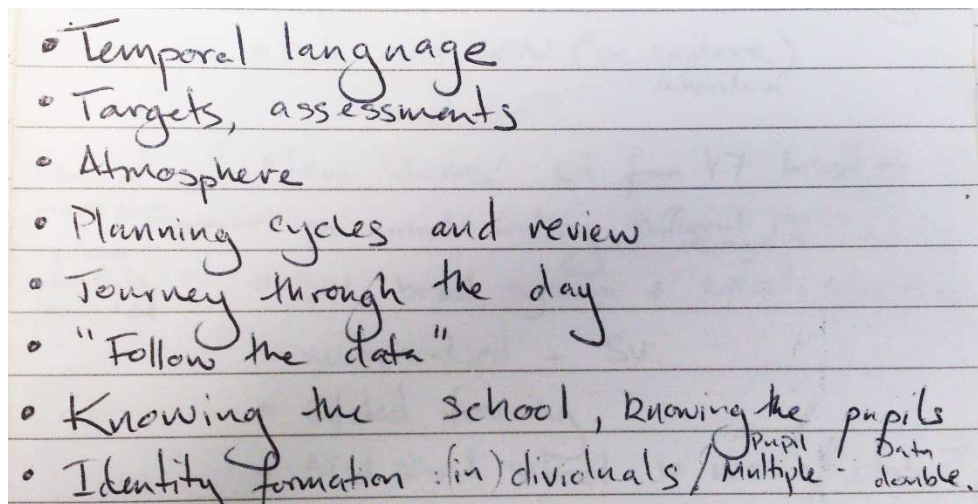 • Temporal language
• Targets, assessments
• Atmosphere
• Planning cycles and review
• Journey through the day
• "Follow the data"
• Knowing the school, knowing the pupils
• Identity formation (in)dividuals / Pupil Multiple · Data double